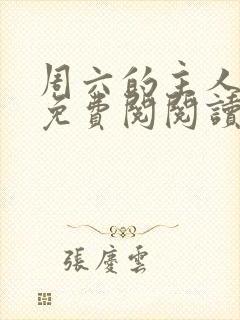 周六的主人
免費閱閱讀
張慶雲